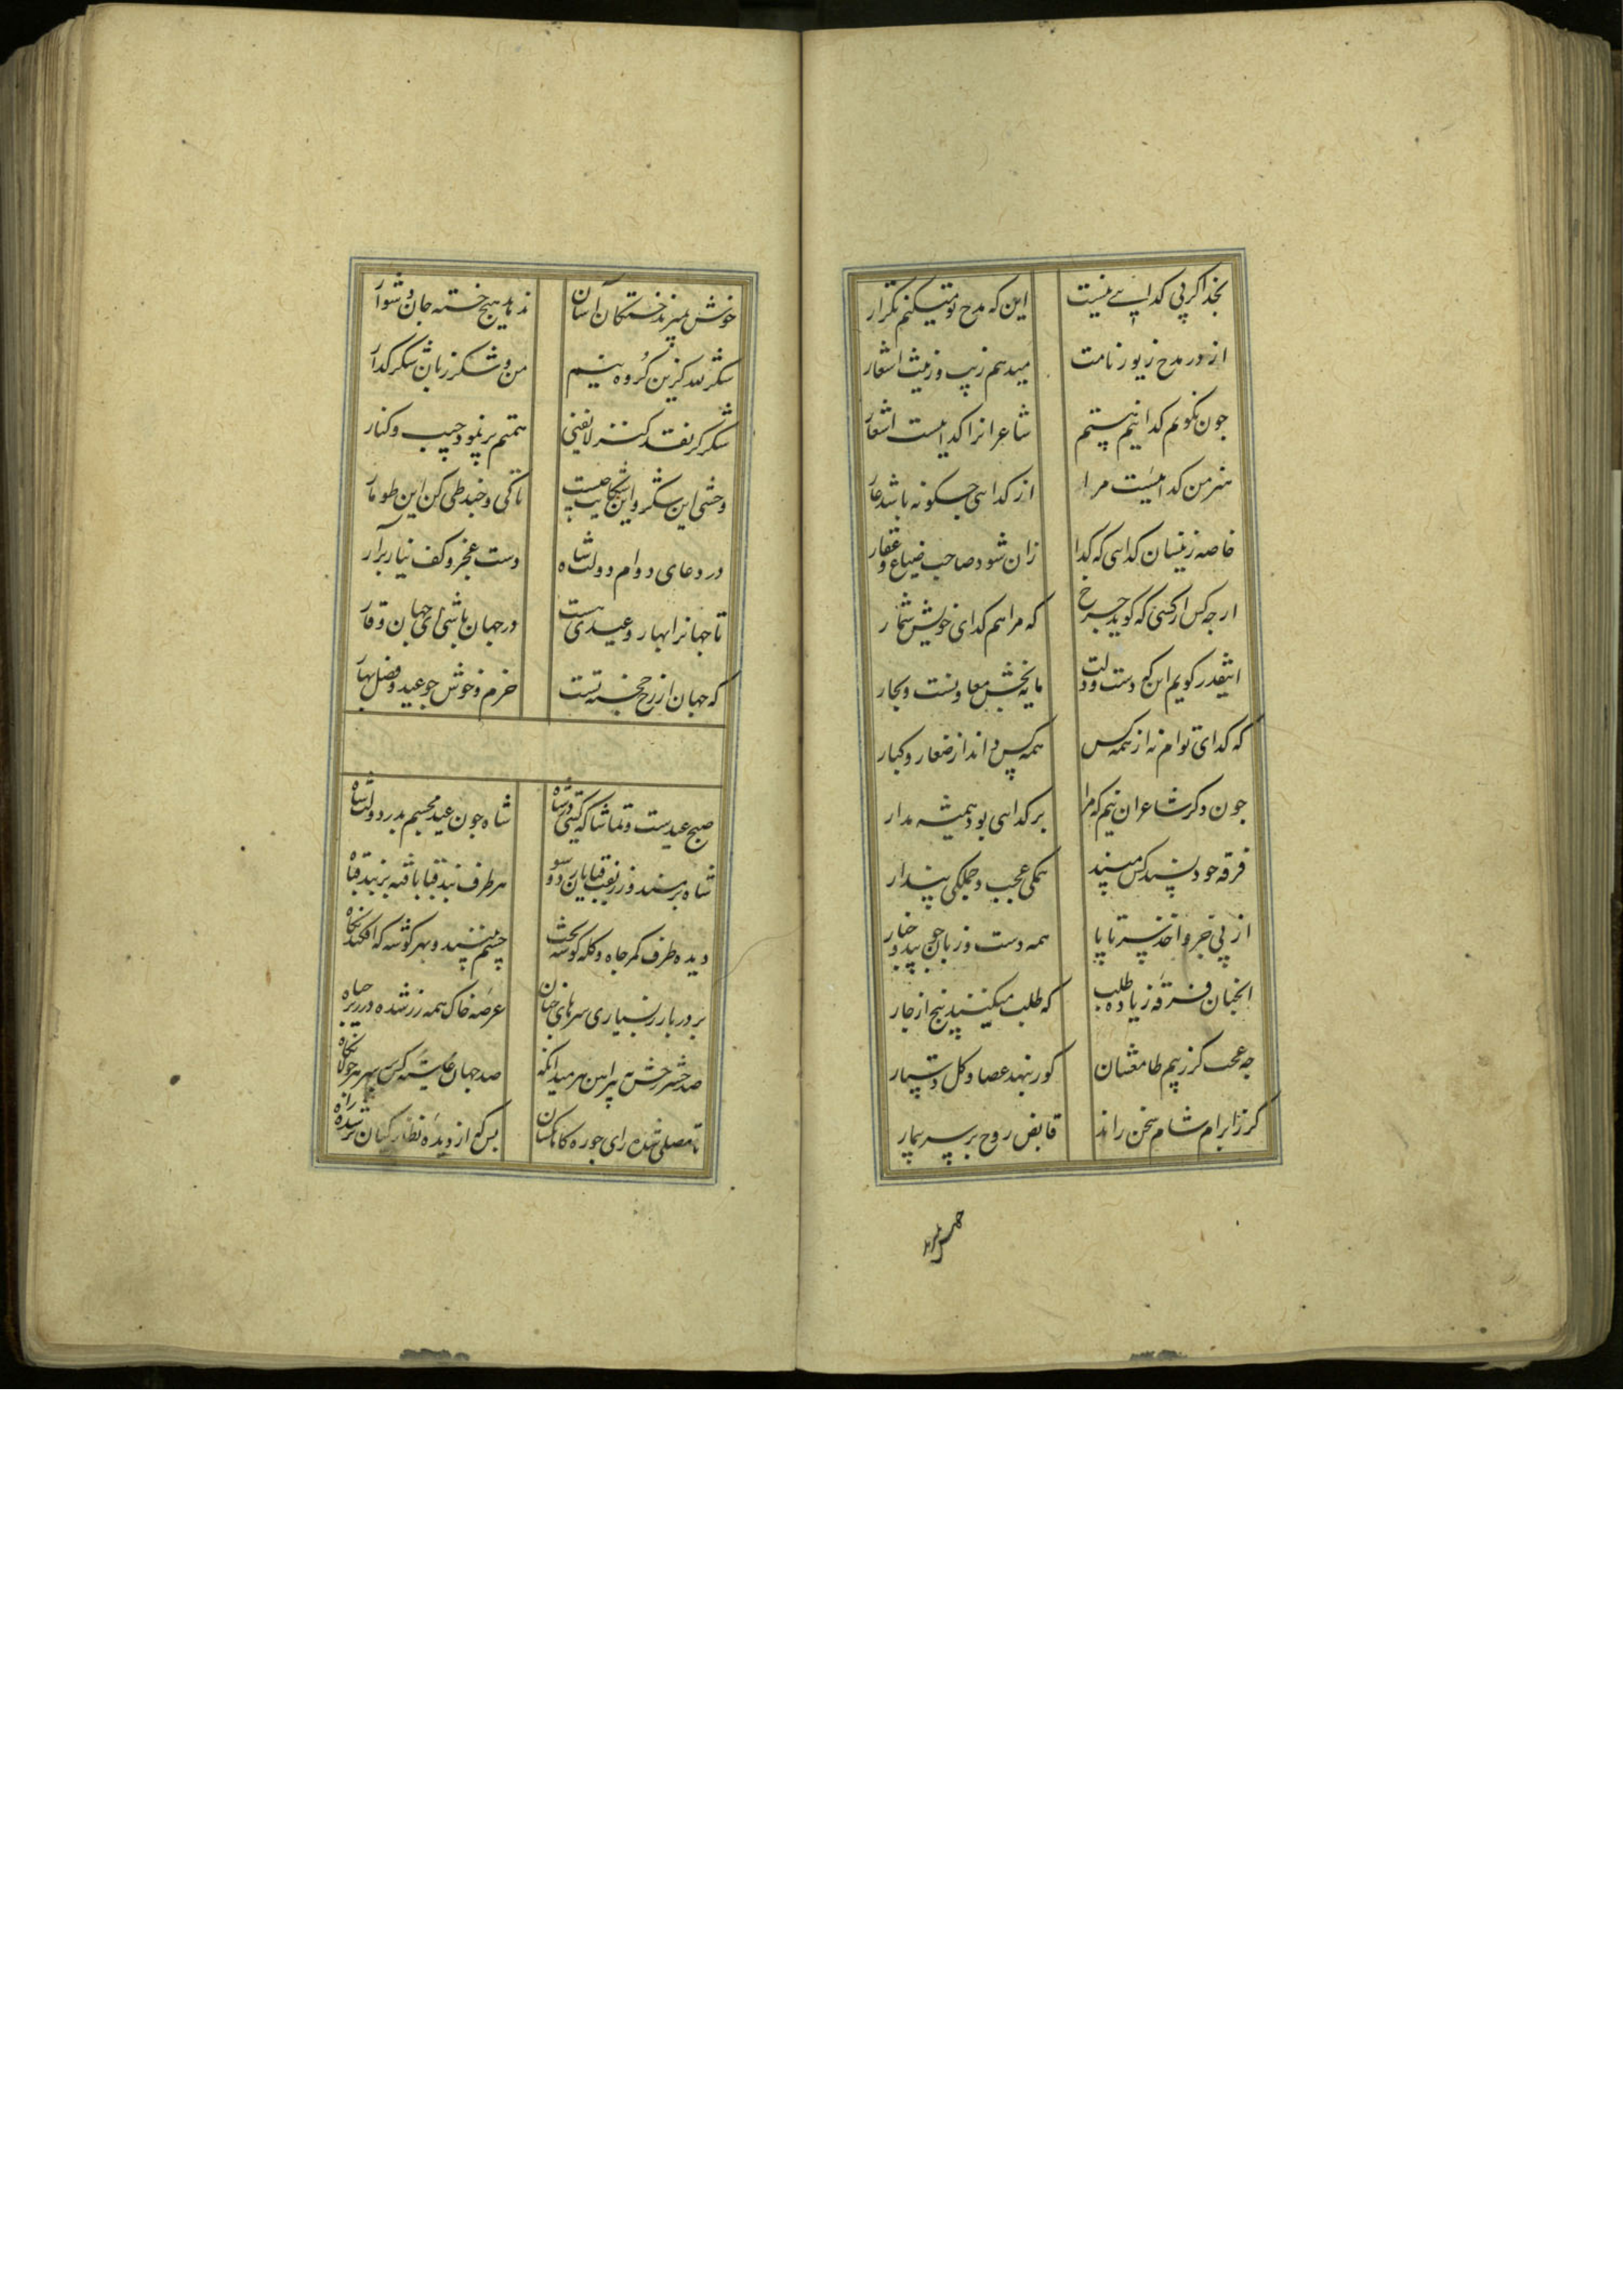 بخدا کر پی کدایی نیست این که مدح تو میکنم تکرار
از در مدح زیور نامت میدهم زیب و زینت اشعار
جون نکویم کدا نیم هستم شاعرانرا کداییست اشعار
هنر من کداییست مرا از کدایی چکونه باشد عار
خاصه زینسان کدایی که کدا زان شود صاحب ضیاع و عقار
ار جه کس از کسی که کوید چرخ که مرا هم کدای خویش شمار
اینقدر کویم این که دست و دلت مایه بخش معادنست و بحار
که کدای توام نه از همه کس همه کس داند از صغار و کبار
جون دکر شاعران نیم که مرا بر کدایی بود همیشه مدار
فرقه خود پسند کس مپسند همکی عجب و جملکی پندار
از پی جر و اخذ سر تا پا همه دست و زبان جون بید و خیار
انجنان فرقه زیاده طلب که طلب میکنند پنج از جار
جه عجب کز بیم طامعشان کور ننهد عصا و کل دستار
کر ز ابرام شام سخن راند قابض روح بر سر بیمار
خوش نمیرند خستکان آسان ندهد هیچ خسته جان دشوار
شکر لله کزین کروه نیم من و شکر زبان شکر کذار
شکر کز نقد کنز لایفنی همتم پر نمود جیب و کنار
وحشی این شکر و این شکایت چیست تا کی و چند طی کن این طومار
در دعای دوام دولت شاه دست عجز و کف نیاز برآر
تا جهانرا بهار و عیدی هست در جهان باشی ای جهان وقار
که جهان از رخ خجسته تست خرم و خوش جو عید و فصل بهار
صبح عیدست و تماشاکه کیتی در شاه شاه جون عید مجسم بدر دولت شاه
شاه بر مسند و زرین قبایان دو سو هر طرف بند قبا بافته بر بند قبا
دیده طرف کمر جاه و کله کوشه بخت چشم بیننده بهر کوشه که افکند نکاه
بر در بار ز بسیاری سرهای جهان عرصه خاک همه زر شده در زیر جباه
صد حشر رخش پیرامن هر میدانکه صد جهان غاشیه کس بهر هر جولانکاه
تا مصلی شده رای جو ره کاهکشان بس که از دیده نظارکیان پر شده راه